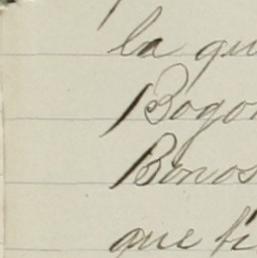 la qu
Bogo
Bonos
que ti